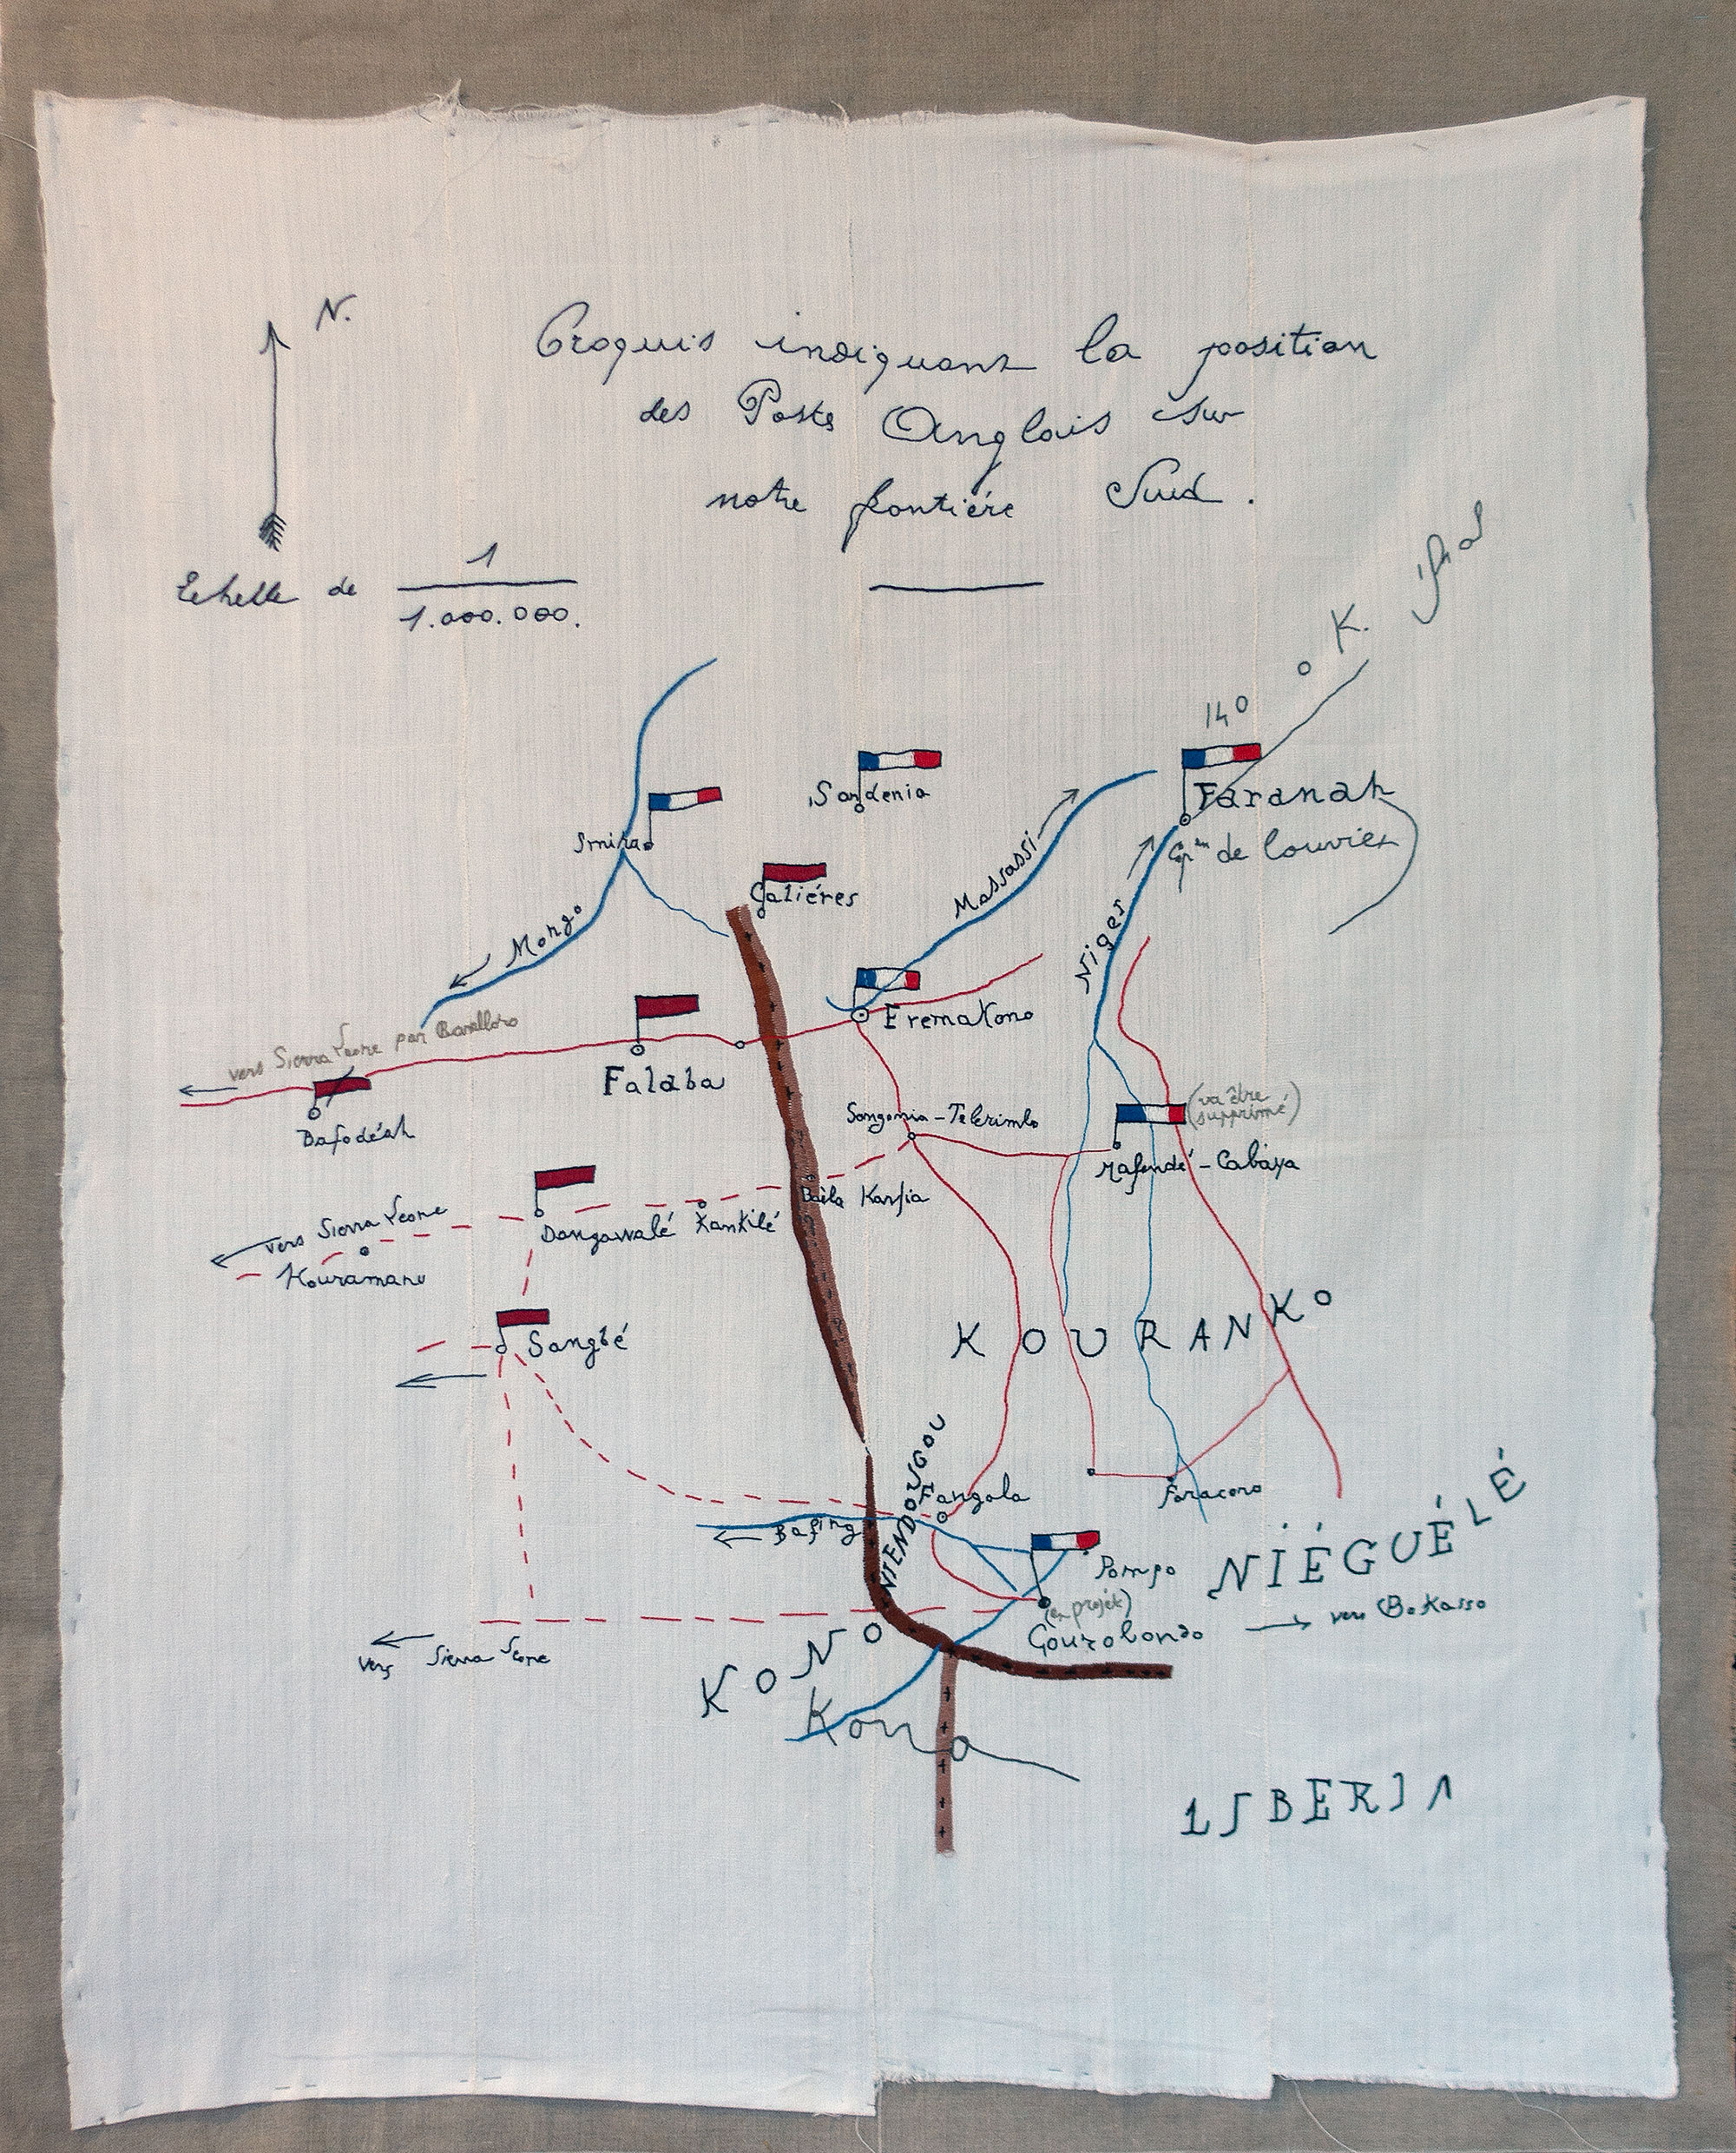 N.
Croquis indiquant la position
des Postes Anglais sur
notre frontière Sud.
Echelle de 1
1.000.000.
K.
140
Faranah
de Louvrier
Sardenia
Galiéres
Mongo
Massassi
Niger
Eremakono
vers Sierra Leone par
Falaba
Bafodéah
Songonia-Telerimbo
(va être
supprimé)
Mafendé-Cabaya
Baïla Kanfia
Dangawalé Kankilé
vers Sierra Leone
Kouramanu
Sangbé
KOURANKO
NIENDOUGOU
Fangala
Faracoro
Bafing
Pompo
NIÉGUÉLÉ
(en projèt)
Gourolondo
vers Bokasso
vers Sierra Leone
KONO
Kono
LIBERIA